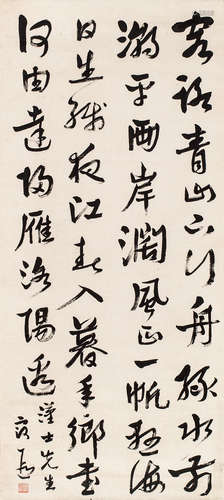 客路青山下行舟綠水前
潮平兩岸濶風正一帆懸海
日生殘夜江春入暮年鄉書
何由達歸雁洛陽邊
士先生